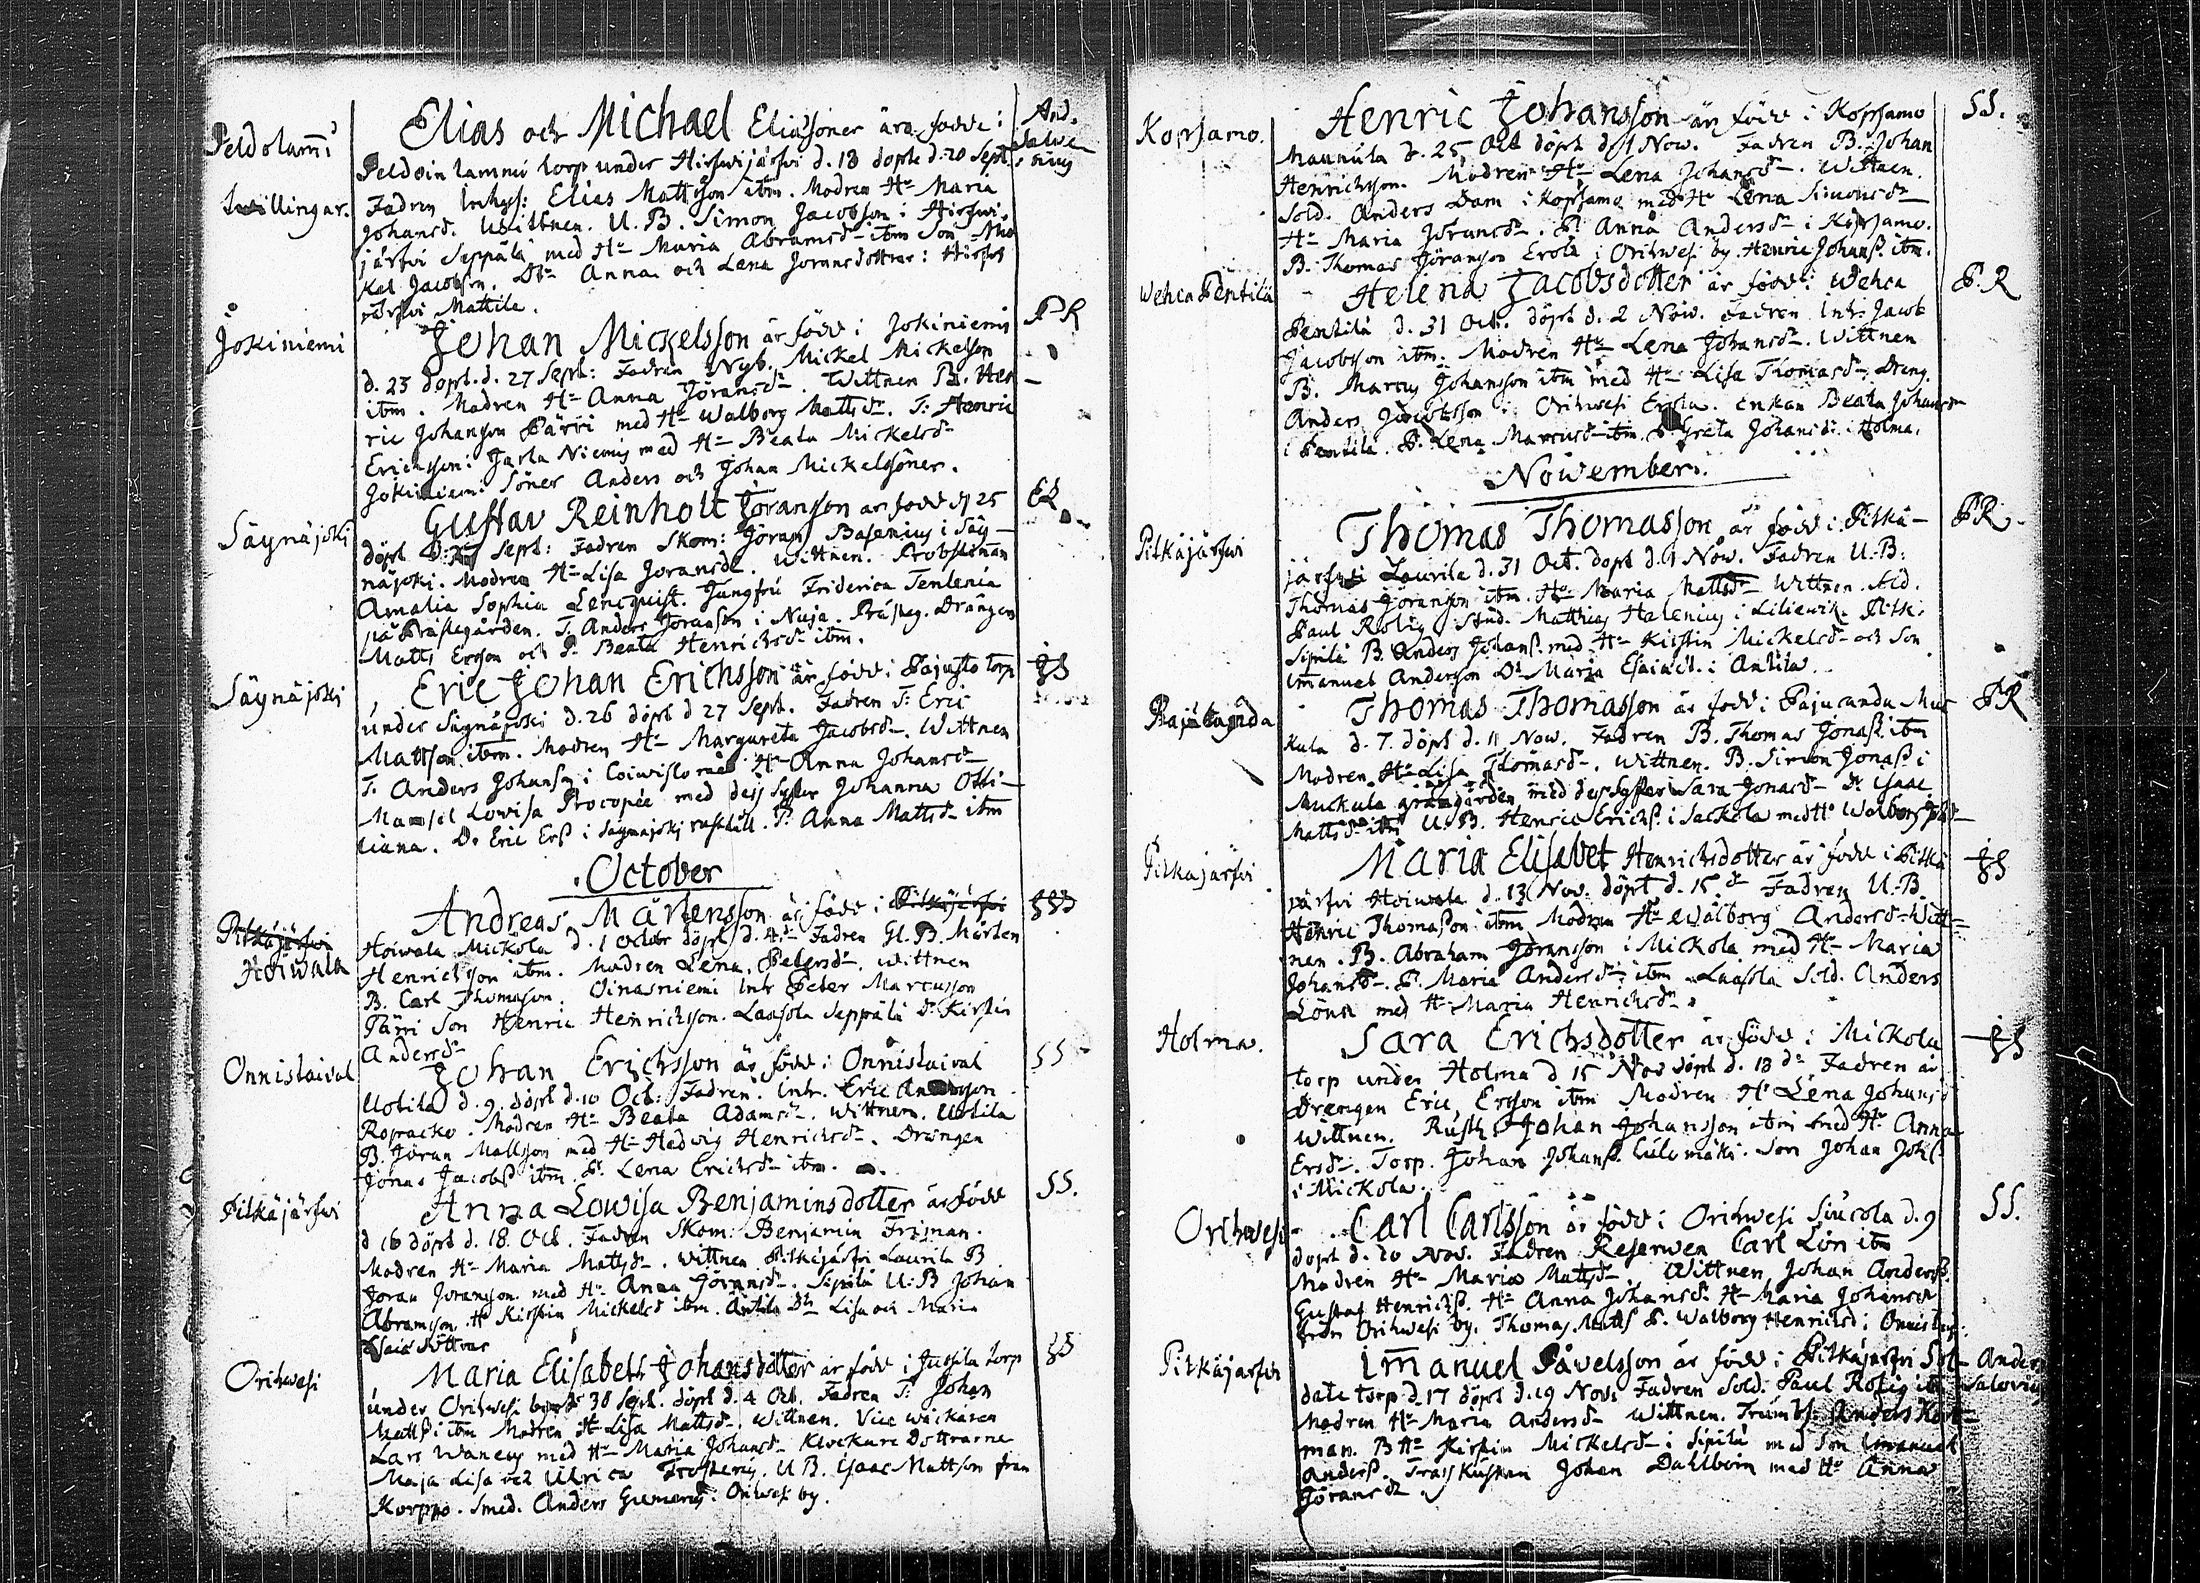 Peldolammi
Elias och Michael Eliæsöner äro födde i
And.
Salve
nius
Peldoinlammi torp under Hirswijärfvi d. 18 döpte d. 20 Sept:
twillingar.
Fadren Inhys: Elias Mattsson ibm. Modren Hu Maria
Johansd. Wittnen. U. B. Simon Jacobson i Hirswi-
järfvi Seppälä med Hu Maria Abramsd ibm Son Mic
kel Jacobson. Dtr Anna och Lena Joransdöttrar i Hirswi
järfvi Mattila.
Jokiniemi
Johan Mickelsson är född i Jokiniemi
PR
d. 23 döpt. d. 27 Sept: Fadren Nyb. Mickel Mickelsson
ibm. Modren Hu Anna Jöransd. Wittnen B. Hen-
ric Johanson Pärri med Hu Walborg Mattsd. T. Henric
Ericsson i Jarla Niemi med Hu Beata Mickelsd
Jokiniemi Söner Anders och Johan Mickelssöner.
Säynäjoki
Gustav Reinholt Joranson är född d 25
ER
döpt d. 27 Sept: Fadren Skom: Jöran Basenius i Säy-
näjoki. Modren Hu Lisa Joransd. Wittnen. Probstinnan
Amalia Sophia Lencquist. Jungfru Friderica Tenlenia
på Prästegården. T. Anders Joranson i Nuja. Prästeg. Drängen
Matts Ersson och P. Beata Henrichsd ibm.
Säynäjoki
Eric Johan Erichsson är född i Pajusto torp
JS
under Säynäjoki d. 26 döpt d 27 Sept. Fadren T: Eric
Mattson ibm. Modren Hu Margareta Jacobsd. Wittnen
T. Anders Johanson i Hu Anna Johansd
Mamsel Lowisa Procopée med dess Syster Johanna Otti-
liana. Dr Eric Erss i Säynäjoki rusthåll. P. Anna Mattsd ibm
October
Pitkäjärfvi
Hoiwala
Andreas Mårtensson är född i Pitkäjärfvi
Hoiwala Mickola d. 1 Octobr döpt d. 4. Fadren Gl. B. Mårten
Henrichsson ibm. Modren Lena Petersd. Wittnen
B. Carl Thomason. Oinasniemi Inh Peter Marcusson
Pärri Son Henric Heinrichsson. Laasola Seppälä Dr Kirstin
Andersd
Onnistaival
Johan Erichsson är född i Onnistaival
SS
Uotila d. 9. döpt d. 10 Oct: Fadren. Inh. Eric Andersson
Ropracko. Modren Hu Beata Adamsd. Wittnen. Uotila
B. Jöran Mattsson med Hu Hedvig Henrichsd. Drängen
Jonas Jacobss ibm. P. Lena Erichsd ibm.
Pitkäjärfvi
Anna Lowisa Benjaminsdotter är född
SS.
d 16 döpt d. 18 Oct. Fadren Skom: Benjamin Friman.
Modren Hu Maria Mattsd. Wittnen Pitkäjärfvi Laurila B
Joran Joranson med Hu Anna Jöransd. Sipilä U: B Johan
Abramson Hu Kirstin Mickelsd ibm. Antila Dtr Lisa och Maria
Esaiæ döttrar
Orihwesi
Maria Elisabeth Johansdotter är född i Jussila torp
JS
under Orihwesi by d 30 Sept. döpt d. 4 Oct. Fadren T: Johan
Mattss i ibm Modren Hu Lisa Mattsd. Wittnen. Vice wäckaren
Lars Wanæus med Hu Maria Johansd Klockare Dottrarne
Maja Lisa och Ulrica Frosterus. U B. Isaac Mattson från
Korppo. Smed. Anders Gumerus Orihwesi by.
Kopsamo.
Henric Johansson är född i Kopsamo
SS.
Maunula d. 25 Oct döpt d. 1 Now. Fadren B. Johan
Henrichsson. Modren Hu Lena Johansd. Wittnen.
Sold. Anders Dam i Kopsamo med Hu Lena Simonsd
Hu Maria Joransd. P. Anna Andersd i Kopsamo.
B. Thomas Jöranson Erola i Orihwesi by. Henric Johanss ibm.
Wehca Pentilä
Helena Jacobsdotter är född i Wehca
P. R
Pentilä d. 31 Oct. döpt d. 2 Now. Fadren Inh: Jacob
Jacobsson ibm. Modren Hu Lena Johansd. Wittnen
B. Marcus Johansson ibm med Hu Lisa Thomasd. Dreng.
Anders Jacobsson i Orihwesi Erola. Enkan Beata Johansd
i Pentilä. P. Lena Marcusd ibm. P Greta Johansd: i Holma.
Nowember.
Pitkäjärfvi
Thomas Thomasson är född i Pitkä-
PR
järfvi Laurila d. 31 Oct. döpt d. 1 Now. Fadren U. B:
Thomas Joranson ibm. Hu Maria Mattsd Wittnen Sld.
Paul Rolig Stud. Matthias Halenius i Liliewik. Pitk.
Sipilä B. Anders Johanss med Hu Kirstin Mickelsd och Son
Imanuel Anderson Dr Maria Esaiæd. i Antila.
Pajukanda
Thomas Thomasson är född i Pajucanda Muc
PR
kula d. 7. döpt d. 11 Now. Fadren B. Thomas Jonass ibm
Modren Hu Lisa Thomasd. Wittnen. B. Simon Jonass i
Muckula med dess Syster Sara Jonasd Dr Isaac
Mattsd ibm U. B. Henric Erichss i Sackola med Hu Walborg
Pitkäjärfvi
Maria Elisabet Henrichsdotter är född i Pitkä
JS
järfvi Hoiwala d. 13 Now. döpt d. 15. Fadren U. B
Henric Thomasson ibm Modren Hu Walborg Andersd Witt-
nen. B. Abraham Jöransson i Mickola med Hu Maria
Johansd. P. Maria Andersd: ibm Laasola Sold. Anders
Lönn med Hu Maria Henrichsd.
Holma.
Sara Erichsdotter är född i Mickola
JS
torp under Holma d 15 Nov döpt d. 18 dº Fadren är
Drengen Eric Ersson ibm Modren Hu Lena Johans
Wittnen. Rusth Johan Johansson ibm med Hu Anna
Ersd. Torp. Johan Johanss Culomäki. Son Johan Johss
i Mickola.
Orihwesi
Carl Carlsson är född i Orihwesi Siucola d. 9
SS.
döpt d. 20 Now. Fadren Reserwen Carl Lön ibm
Modren Hu Maria Mattsd. Wittnen Johan Anderss.
Gustaf Henrichss. Hu Anna Johansd. Hu Maria Johansd
från Orihwesi by. Thomas Matts P. Walborg Henrichsd i
Pitkäjärfvi
Imanuel Påvelsson är född i Pitkäjärfvi Sol-
Anders
Salovius
date torp d. 17 döpt d. 19 Now. Fadren Sold. Paul Rolig ibm
Modren Hu Maria Andersd Wittnen. Trumbsl. Anders Kort-
man. B Hu Kirstin Mickelsd i Sipilä med Son Imanuel
Anderss. Johan Dahlbom med Hu Anna
Göransd.